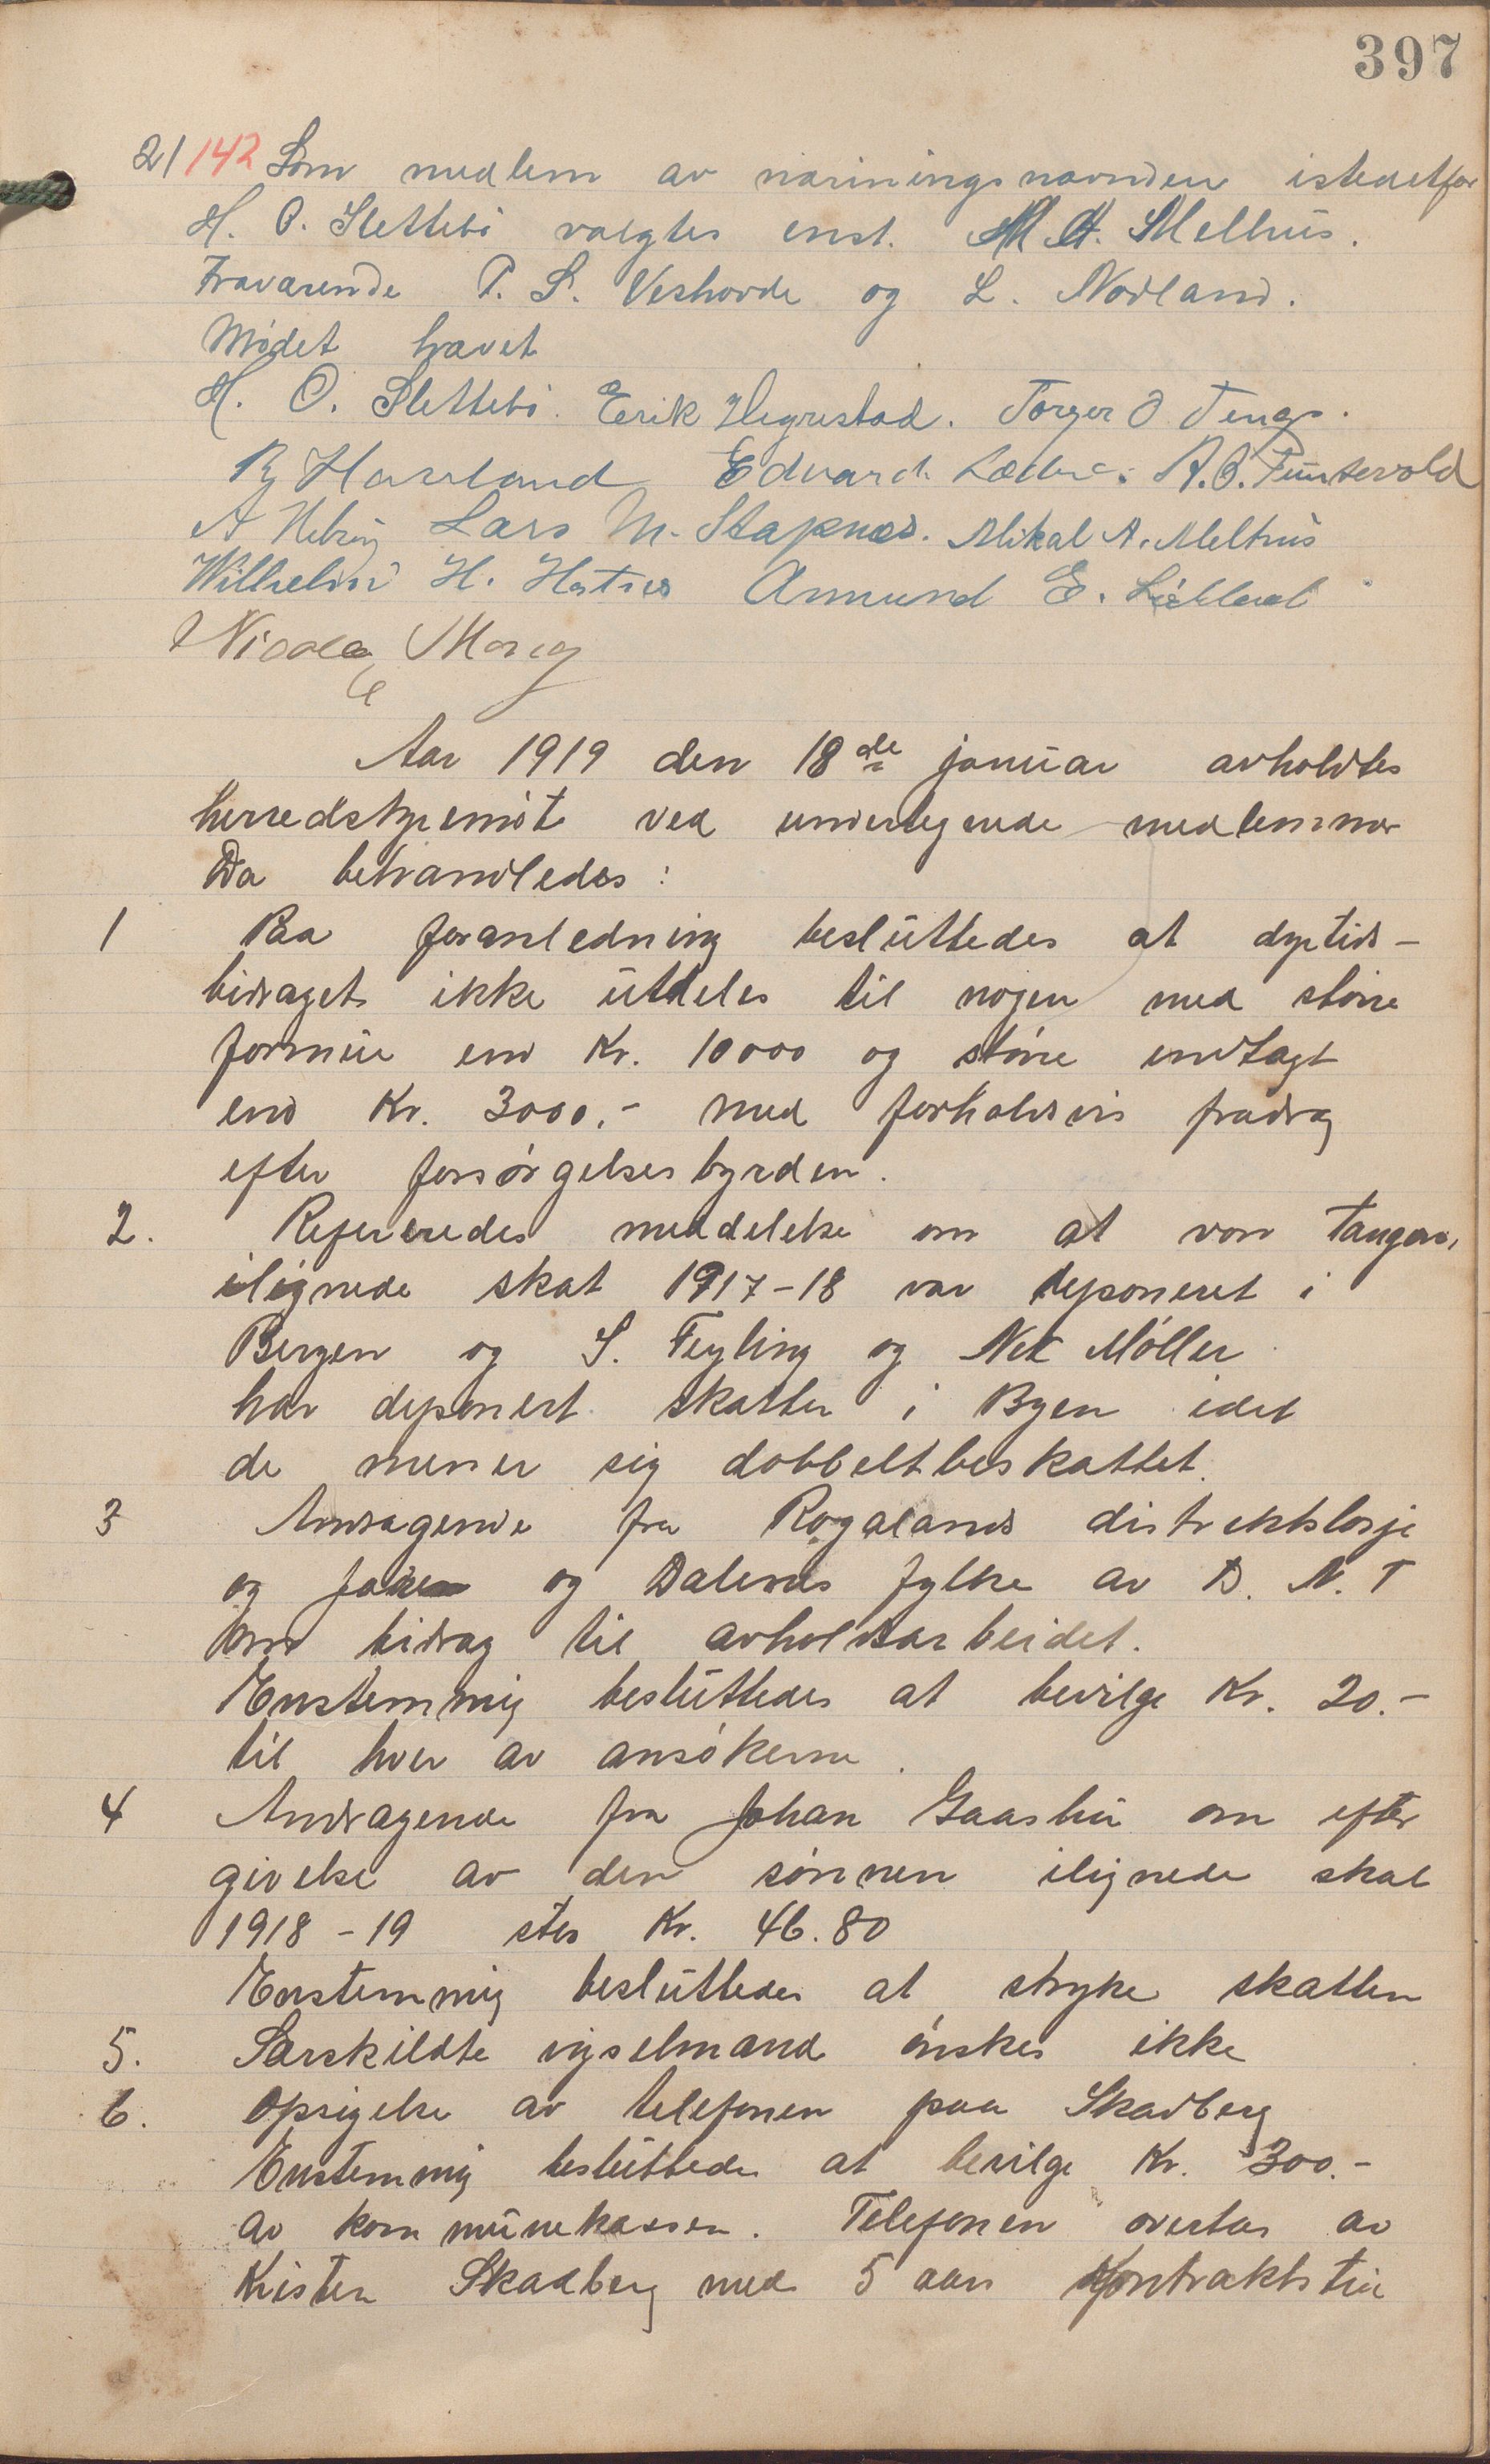 397
21/142 Som medlem av næringsnævnden istedetfor
H. O. Slettebö valgtes enst. M A. Melhus.
Fraværende P. S. Veshovde og L. Nodland.
Mödet hævet
H. O. Slettebö. Eerik Hegrestad. Torger O Tengs.
Edvard A. O. Puntervold
A Lars M. Stapnes. Mikal A. Melhus
Wilhelm H. Amund E.
Nicolay
Aar 1919 den 18de januar avholdtes
herredstyremöte ved undertegnede medlemmer
Da behandledes:
1 Paa foranledning besluttedes at dyrtids-
bidraget ikke utdeles til nogen med större
formue end Kr. 10000 og större indtægt
end Kr. 3000.- med forholdsvis fradrag
efter forsörgelsesbyrden.
2. Refereredes meddelelse om at von Tangen,
ilignede skat 1917-18 var deponeret i
Bergen og S. Feyling og Nik Möller
har deponert skatten i Byen idet
de mener sig dobbeltbeskattet.
3 Andragende fra Rogalands distriktslosje
og og Dalernes fylke av D. N. T
om bidrag til avholdsarbeidet.
Enstemmig besluttedes at bevilge Kr. 20.-
til hver av ansökerne.
4 Andragende fra Johan Gaashu om efter
givelse av den sönnen ilignede skat
1918-19 stor Kr. 46.80
Enstemmig besluttedes at stryke skatten
5. Særskildte vigselmænd önskes ikke
6. Opsigelse av telefonen paa Skadberg
Enstemmig besluttedes at bevilge Kr. 300.-
av kommunekassen. Telefonen overtas av
Kisten Skadberg med 5 aars Kontraktstid